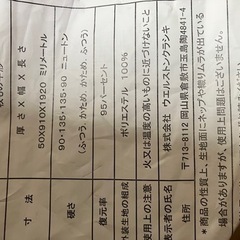 厚さ×幅×長さ
寸法 50×910×1920 ミリメートル
硬さ 90・135・135・90 ニュートン
(ふつう かため かため ふつう)
復元率 95パーセント
外装生地の組成 ポリエステル 100%
使用上の注意 火又は温度の高いものに近づけないこと
表示者の氏名 株式会社 ウエルストンクランキ
住所 〒713-8112 岡山県倉敷市玉島陶4841-4
*商品の性質上、生地面にネップや織りムラが出ている
場合がありますが、使用上問題はございません。